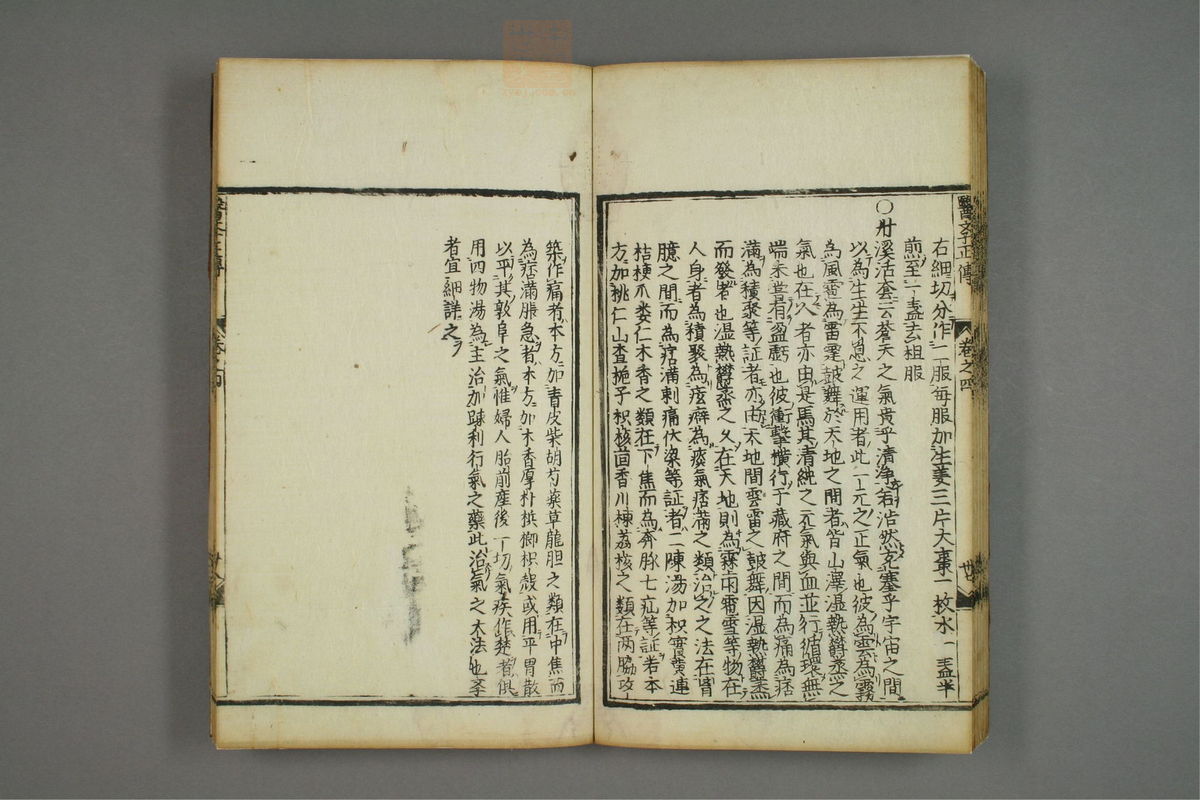 醫學正傳
卷之四
右細切分作二服每服加生姜三片大棗一枚水一盞半
煎至一盞去粗服
○丹溪活套云蒼天之氣貴乎清净若浩然充塞乎宇宙之間
以為生生不息之運用者此一元之正氣也彼為雲為霧
為風雷為雷霆鼓舞於天地之間者皆山澤温熱欝蒸之
氣也在人者亦由是焉其清純之元氣與血並行循環無
端未甞有盈虧也彼衝擊横行于藏府之間而為痛為痞
滿為積聚等証者亦由天地間雲雷之鼓舞因温熱欝蒸
而發者也温熱欝蒸之久在天地則為霖雨雹雪等物在
人身者為積聚為痃癖為痰氣痞滿之類治之之法在胃
臆之間而為痞滿刺痛伏梁等証者二陳湯加枳實黄連
桔梗爪蔞仁木香之類在下焦而為奔豚七疝等証若本
方加桃仁山査梔子枳核茴香川楝荔核之類在两脇攻
築作痛者本方加青皮柴胡芍藥草龍胆之類在中焦而
為痞滿脹急者本方加木香厚朴梹榔枳殻或用平胃散
以平其敦阜之氣惟婦人胎前產後一切氣疾作楚者俱
用四物湯為主治加踈利行氣之藥此治氣之大法也
者宜細詳之
醫學正傳
卷之四